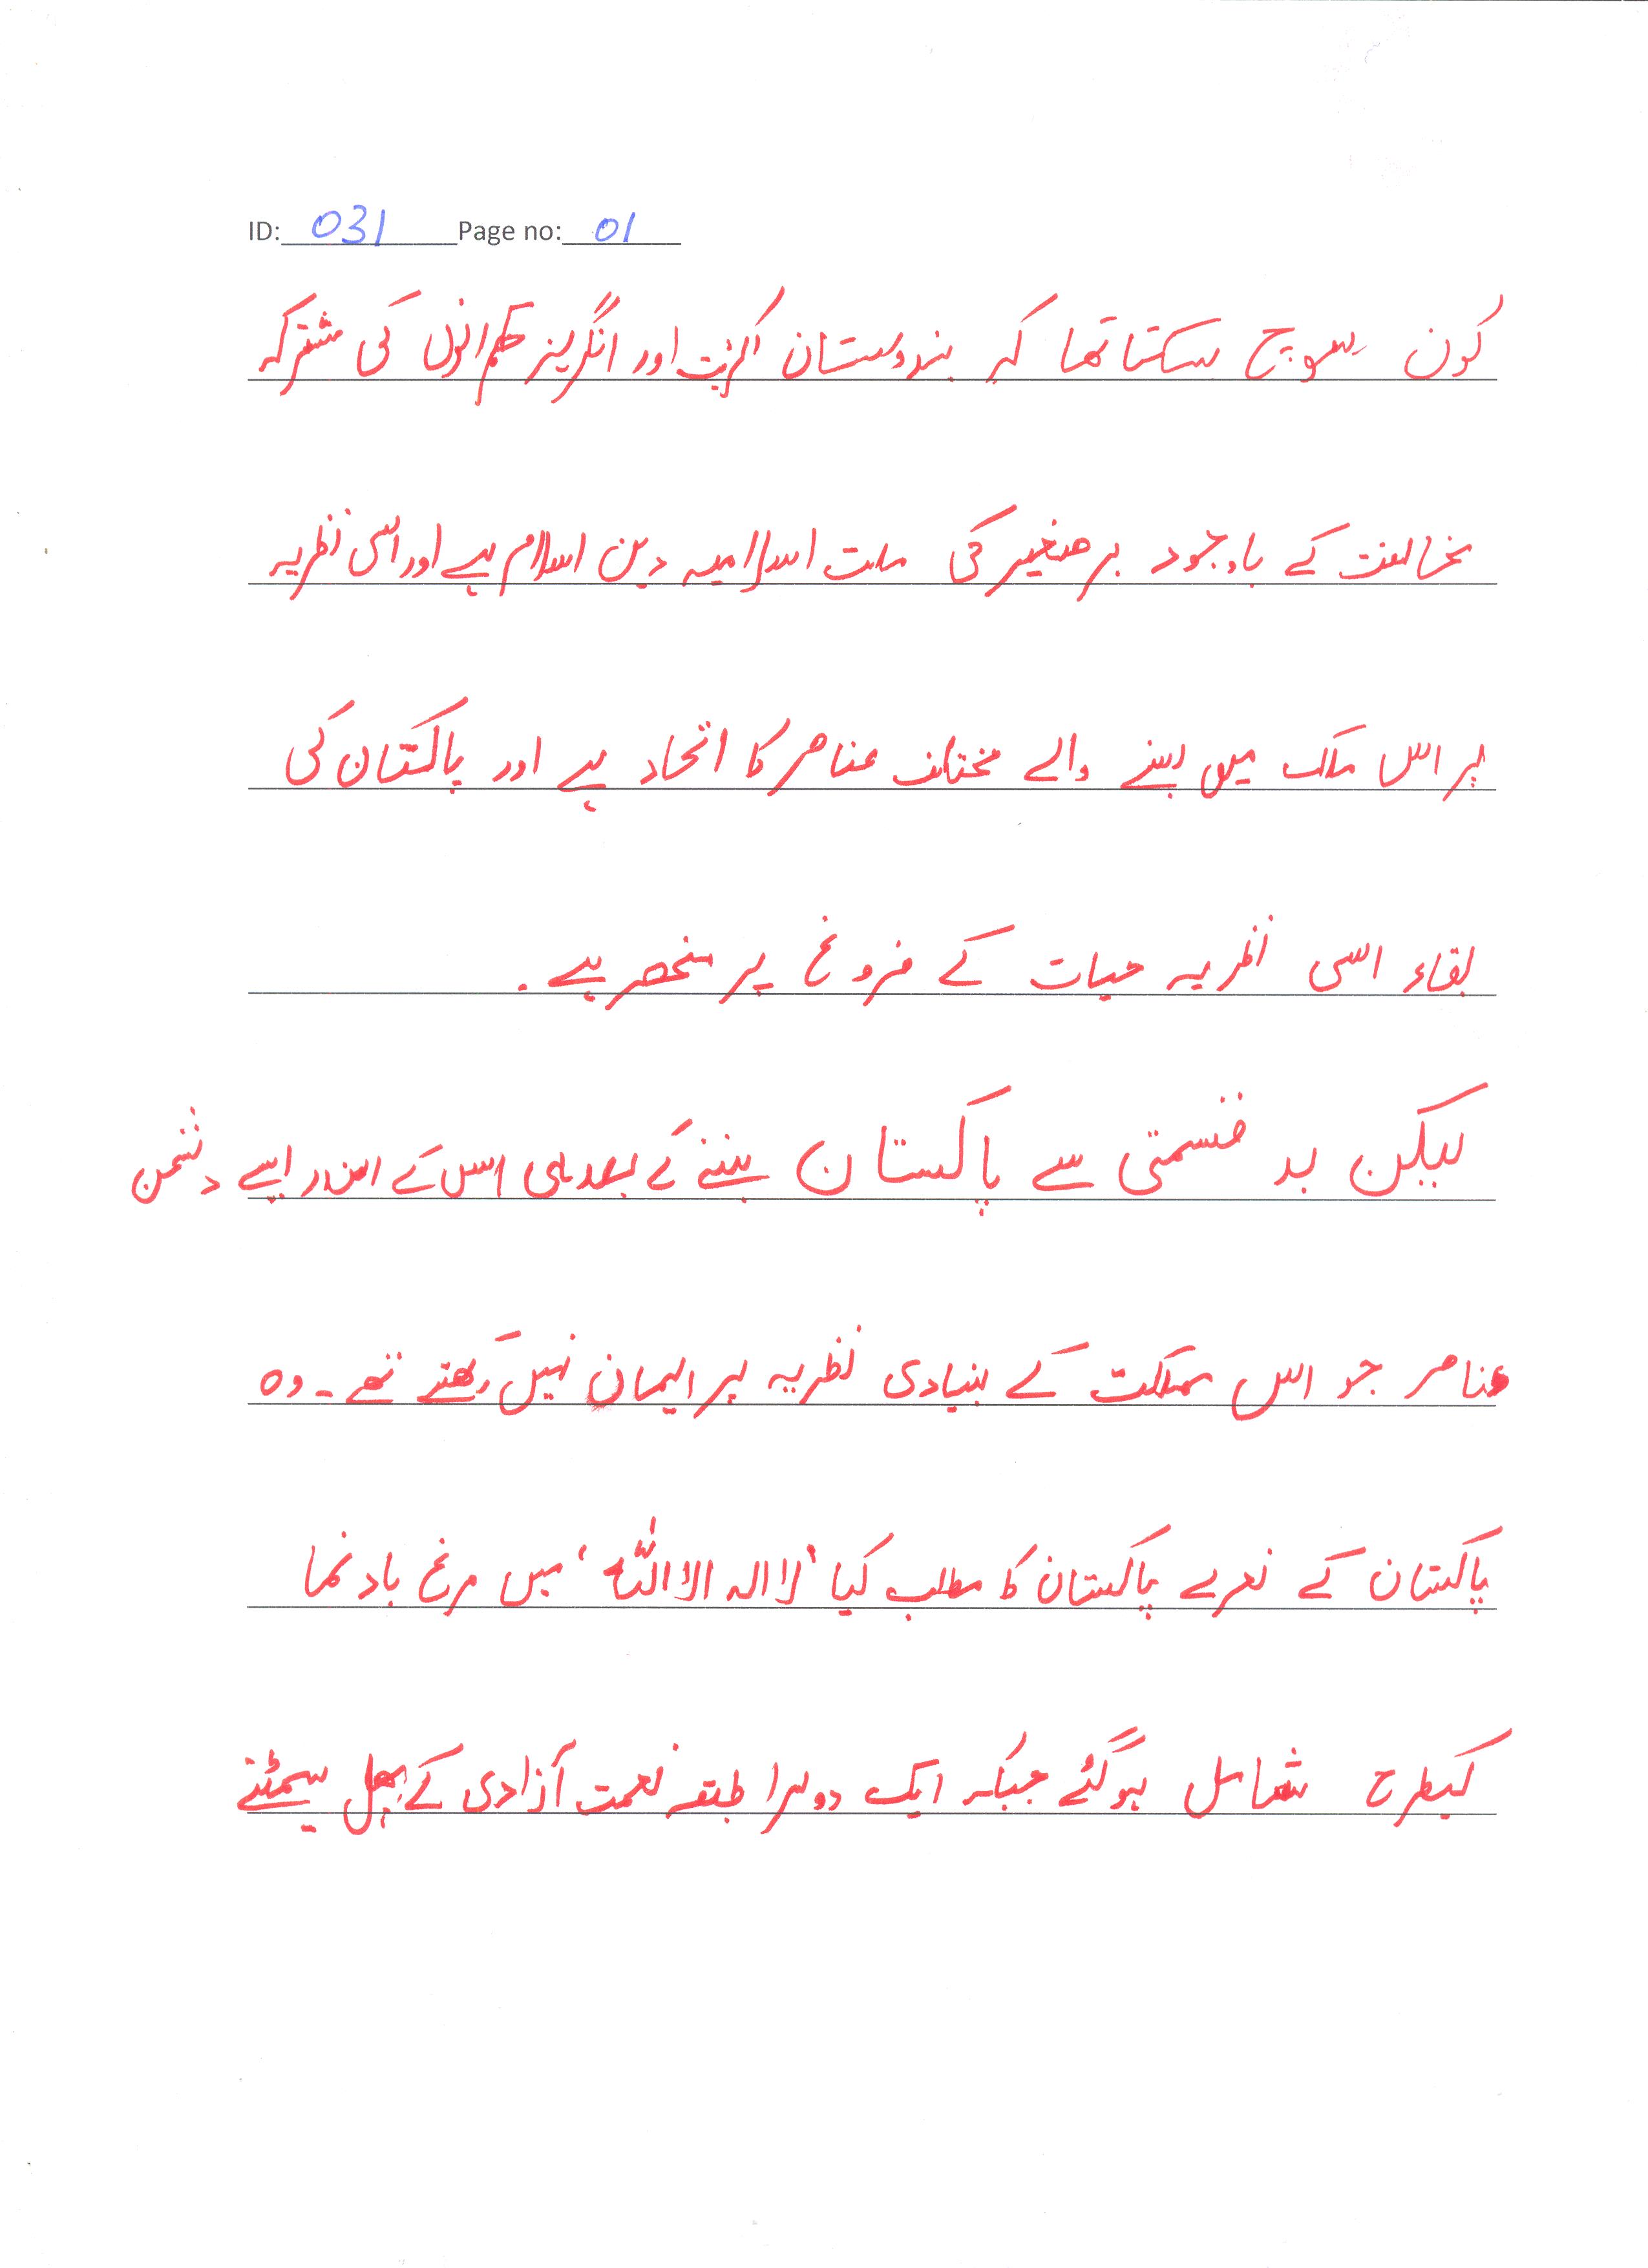 ID: 031 Page no: 01
کون سوچ سکتا تھا کہ ہندوستان اکثریت اور انگریز حکمرانوں کی مشترکہ
مخالفت کے باوجود برصغیر کی ملت اسلامیہ دین اسلام ہے اور اسی نظریہ
پر اس ملک میں بسنے والے مختلف عناصر کا اتحاد ہے اور پاکستان کی
بقاء اسی نظریہ حیات کے فروغ پر منحصر ہے۔
لیکن بد قسمتی سے پاکستان بننے کے بعد ہی اس کے اندر ایسے دشمن
عناصر جو اس مملکت کے بنیادی نظریہ پر ایمان نہیں رکھتے تھے۔ وہ
پاکستان کے نعرے پاکستان کا مطلب کیا 'لا الہ الا اللہ' میں مرغ باد نما
کیطرح شامل ہوگئے جبکہ ایک دوسرا طبقہ نعمت آزادی کے پھل سمیٹنے